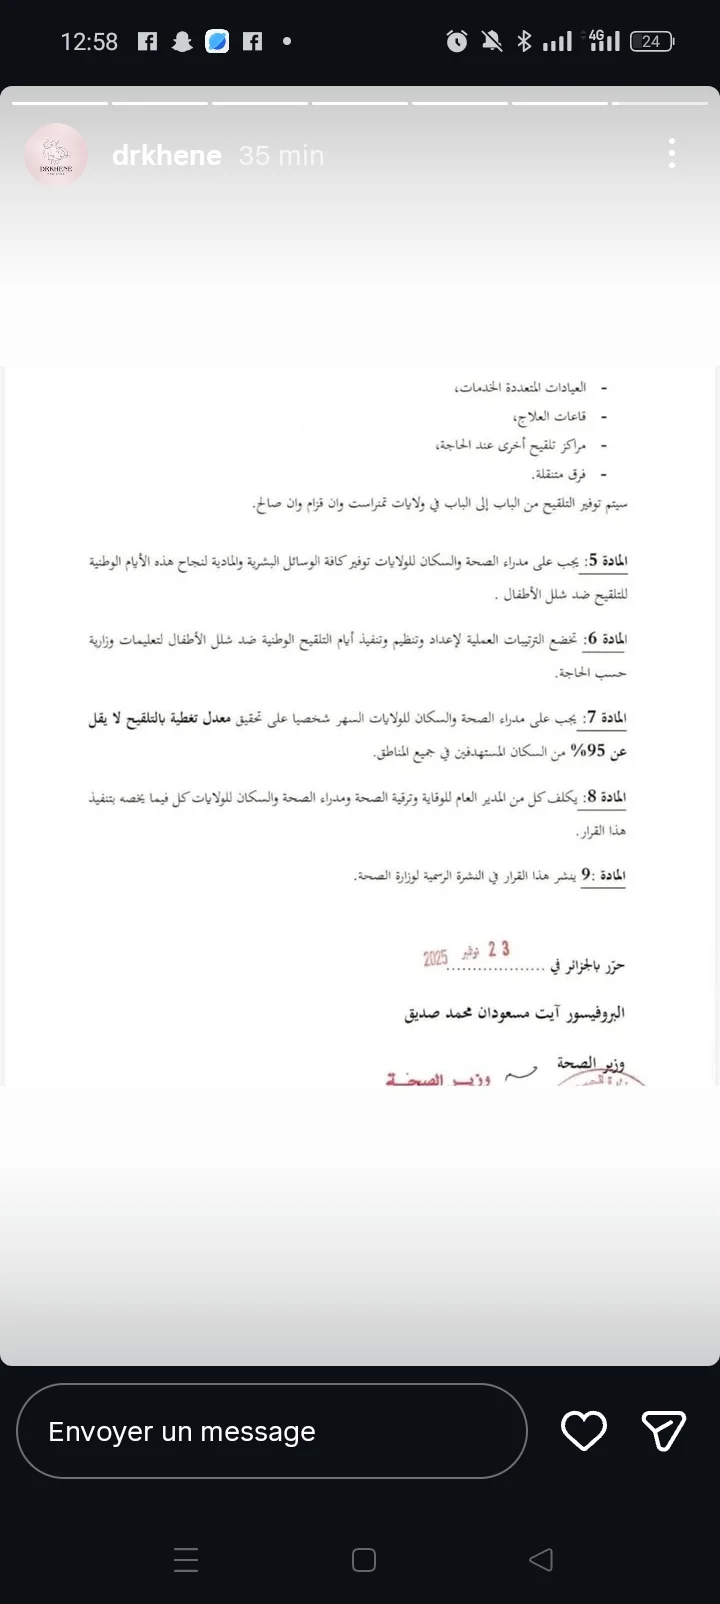 12:58
4G
24
drkhene 35 min
DRKHENE
- العيادات المتعددة الخدمات،
- قاعات العلاج،
- مراكز تلقيح أخرى عند الحاجة،
- فرق متنقلة.
سيتم توفير التلقيح من الباب إلى الباب في ولايات تمنراست وان قزام وان صالح.
المادة 5: يجب على مدراء الصحة والسكان للولايات توفير كافة الوسائل البشرية والمادية لنجاح هذه الأيام الوطنية
للتلقيح ضد شلل الأطفال .
المادة 6: تخضع الترتيبات العملية لإعداد وتنظيم وتنفيذ أيام التلقيح الوطنية ضد شلل الأطفال لتعليمات وزارية
حسب الحاجة.
المادة 7: يجب على مدراء الصحة والسكان للولايات السهر شخصيا على تحقيق معدل تغطية بالتلقيح لا يقل
عن 95% من السكان المستهدفين في جميع المناطق.
المادة 8: يكلف كل من المدير العام للوقاية وترقية الصحة ومدراء الصحة والسكان للولايات كل فيما يخصه بتنفيذ
هذا القرار.
المادة :9 ينشر هذا القرار في النشرة الرسمية لوزارة الصحة.
حرّر بالجزائر في ................ 23 نوفمبر 2025
البروفيسور آيت مسعودان محمد صديق
وزير الصحة
وزير الصحة
Envoyer un message